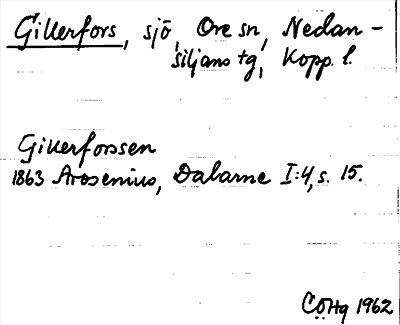 Gillerfors, sjö, Ore sn, Nedan-
siljans tg, Kopp. l.
Gillerforssen
1863 Arosenius, Dalarne I:4, s. 15.
CÖHg 1962